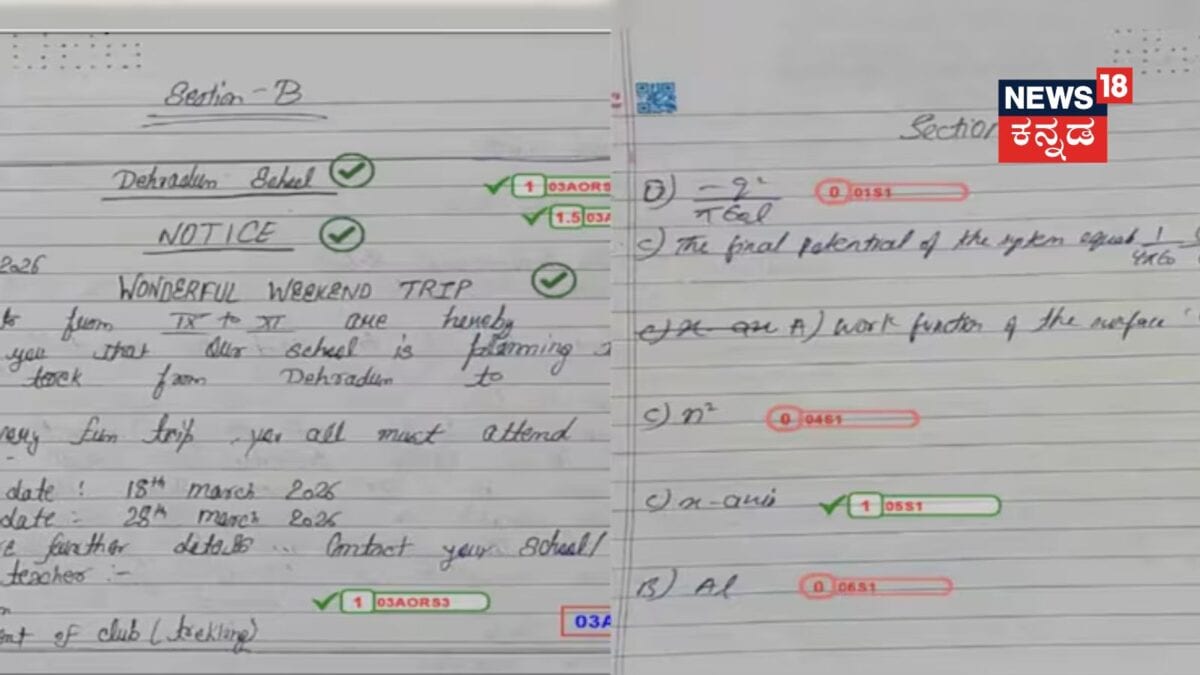 Section - B
Dehradun School
1 03AORS
NOTICE
1.5 03A
2026
WONDERFUL WEEKEND TRIP
from IX to XI are hereby
you that our school is planning
from Dehradun to
fun trip you all must attend
date : 18th march 2026
date :- 28th march 2026
further details ... Contact your school/
teacher :-
1 03AORS3
of club (trekling)
03A
NEWS 18
ಕನ್ನಡ
Section
D) -q²/πε0l 0 01S1
C) The final potential of the system equal 1/4πε0
A) work function of the surface
C) n² 0 04S1
C) x-axis 1 05S1
B) Al 0 06S1